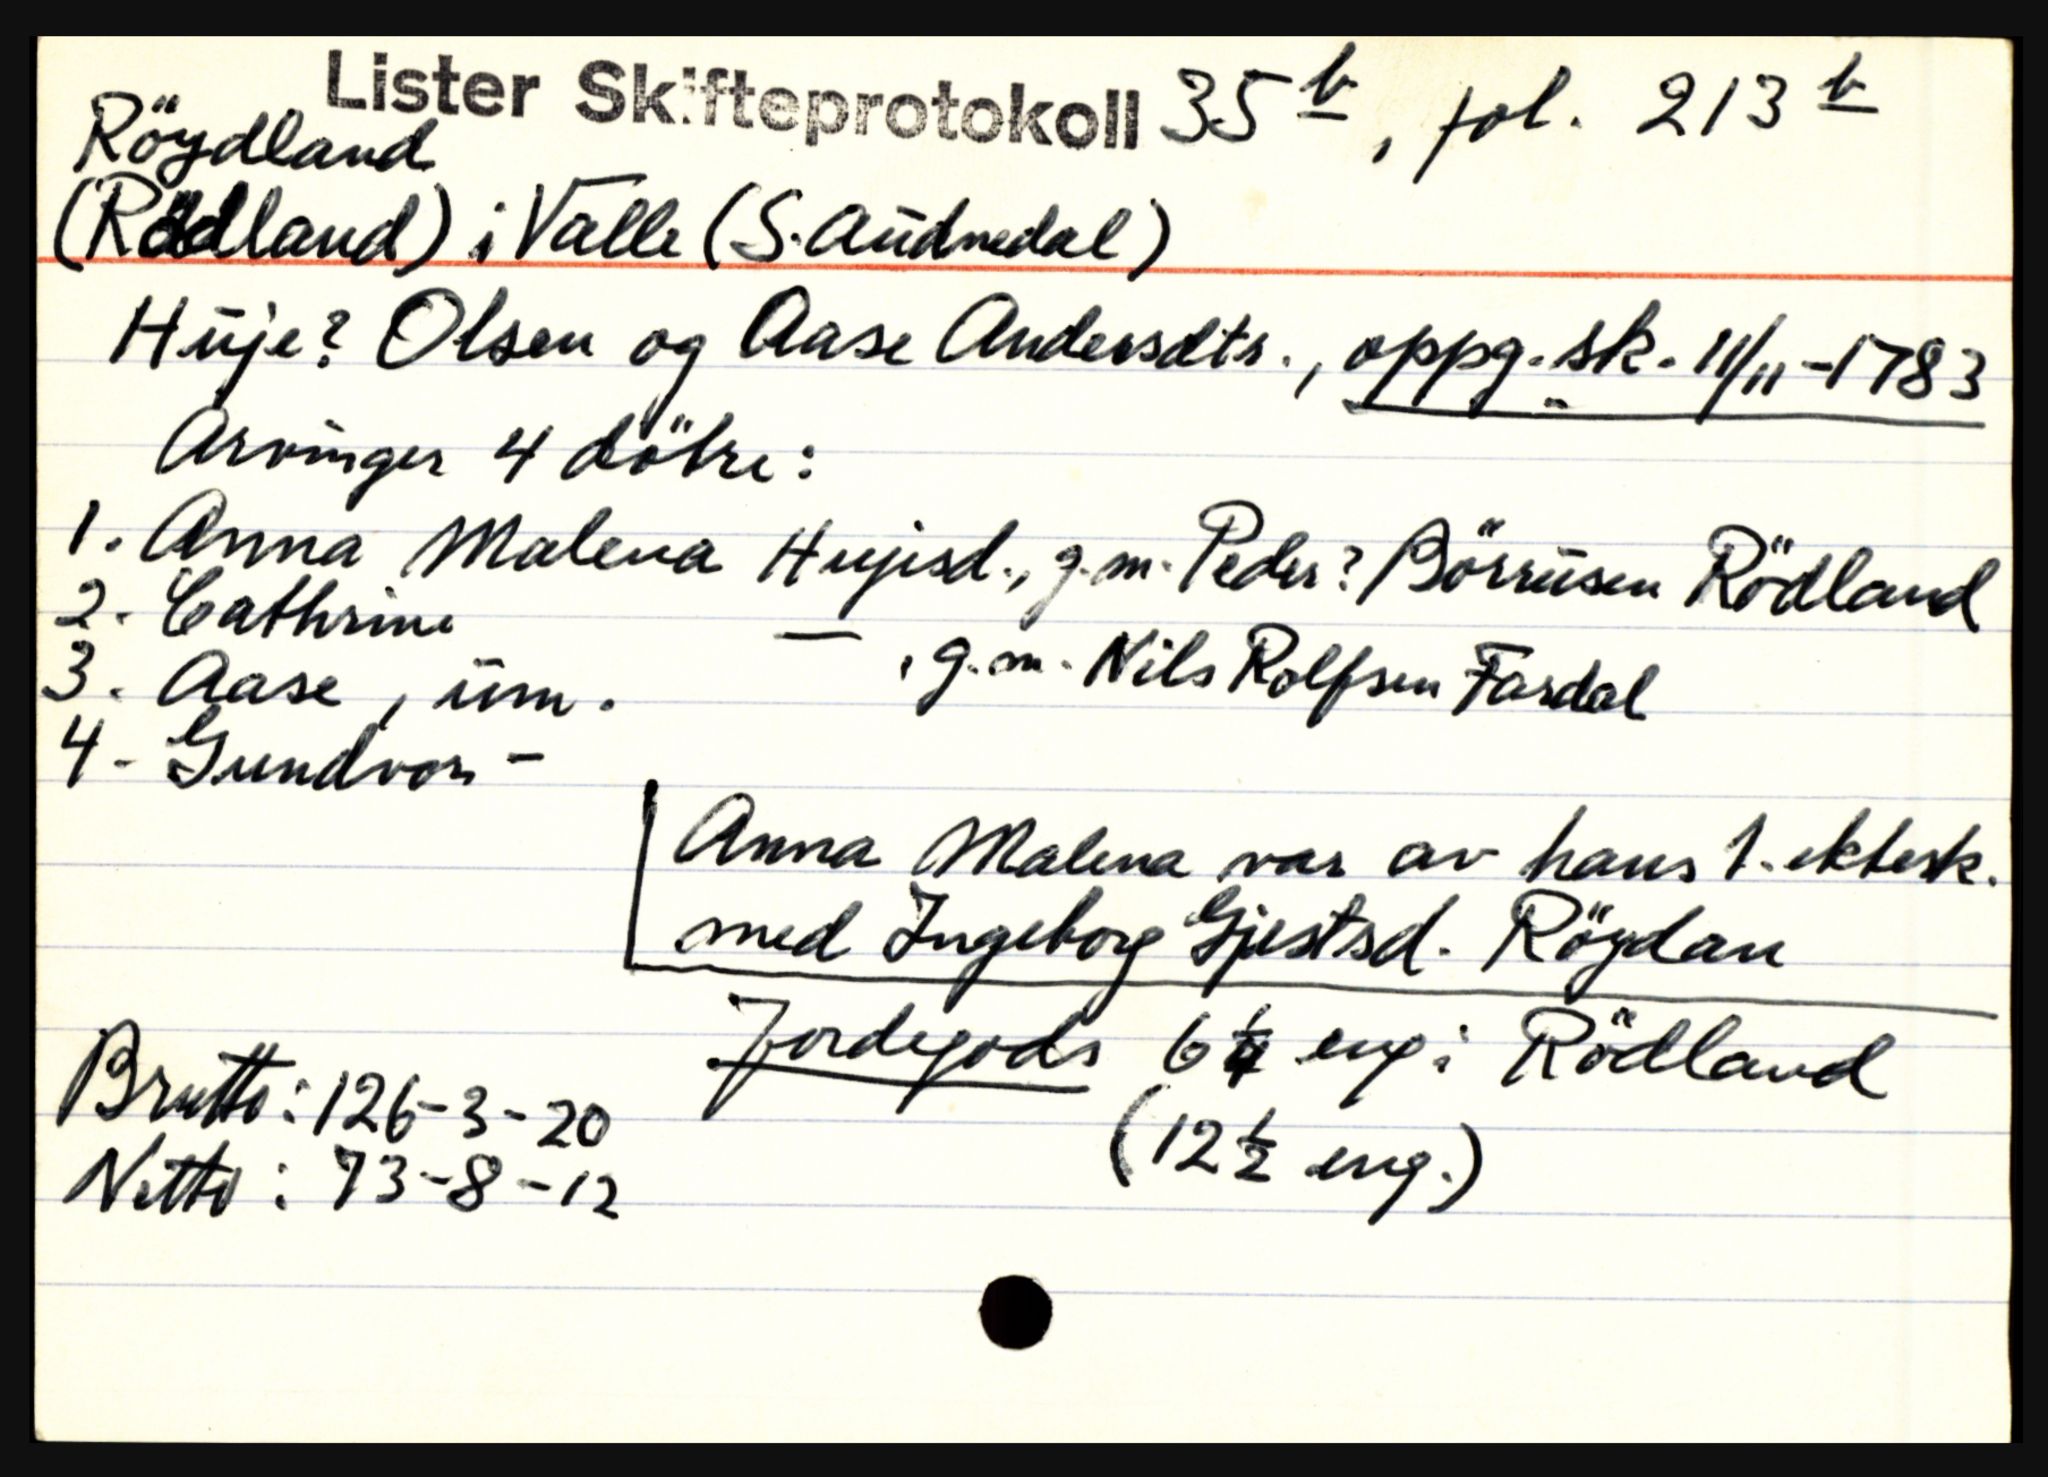 Lister Skifteprotokoll 35b, fol. 213b
Röydland
(Rödland) i Valle (S. Audnedal)
Huje? Olsen og Aase Andersdtr., oppg. sk. 11/11-1783
Arvinger 4 döbre:
1. Anna Malena Hujisd., g.m. Peder? Börrusen Rödland
2. Cathrine — , g.m. Nils Rolfsen Fardal
3. Aase, um.
4 - Gundvor -
Anna Malena var av hans 1. ektesk.
med Ingeborg Gjestsd. Röydan
Jordegods 6 1/4 eng i Rödland
(12 1/2 eng.)
Brutto: 126-3-20
Netto: 73-8-12